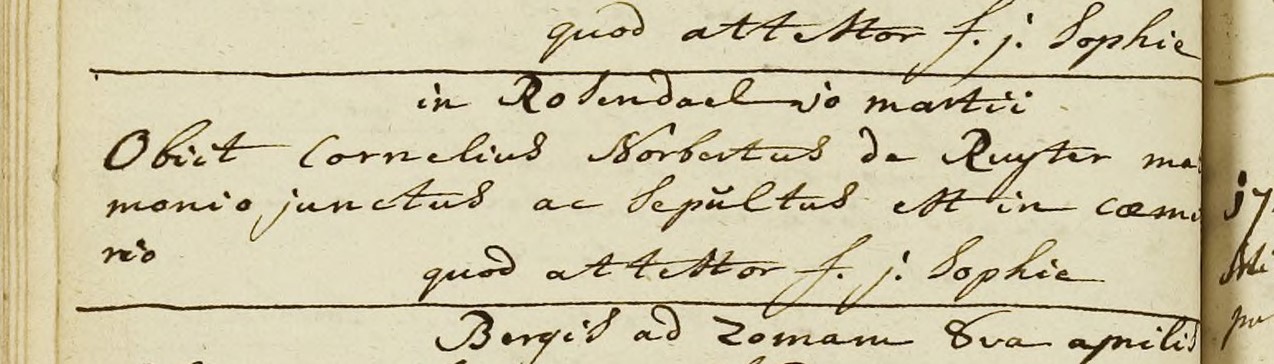 quod attestor f. j. Sophie
in Rosendael martii
Obiit Cornelius Norbertus de Ruyter ma
monio junctus ac Sepŭltus est in cœm
rio
quod attestor f. j. Sophie
Bergis ad Zomam 8va aprilis
j7